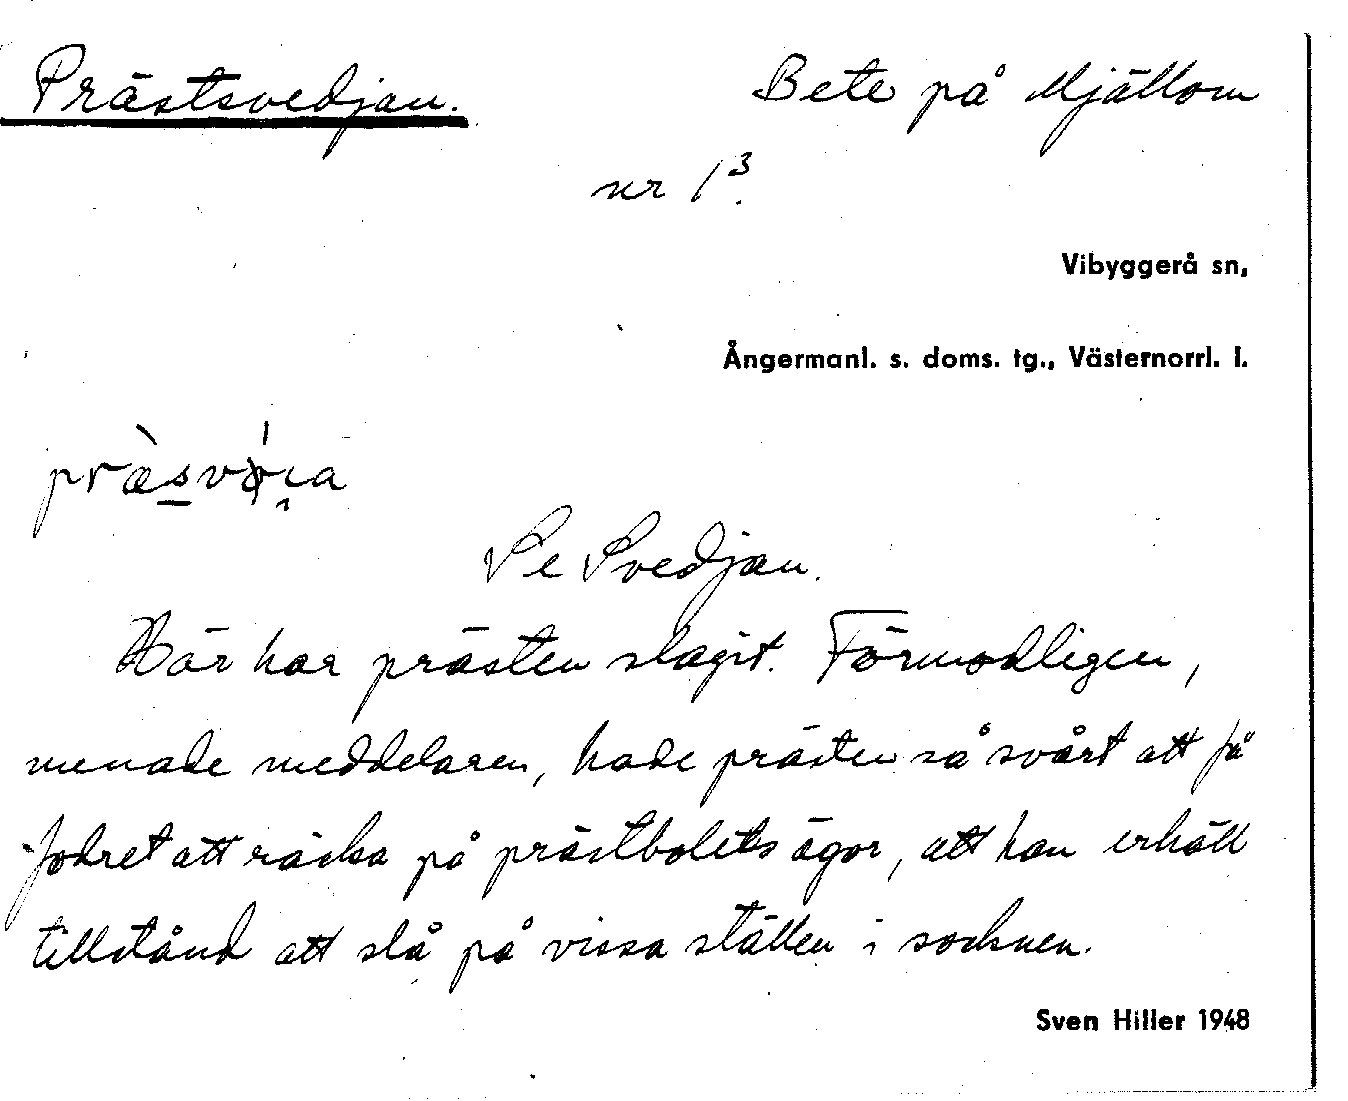 Prästsvedjan. Bete på Mjällom
nr 1³.
Vibyggerå sn,
Ångermanl. s. doms. tg., Västernorrl. l.
Se Svedjan.
Här har prästen slagit. Förmodligen,
menade meddelaren, hade prästen så svårt att få
fodret att räcka på prästbolets ägor, att han erhöll
tillstånd att slå på vissa ställen i socknen.
Sven Hiller 1948